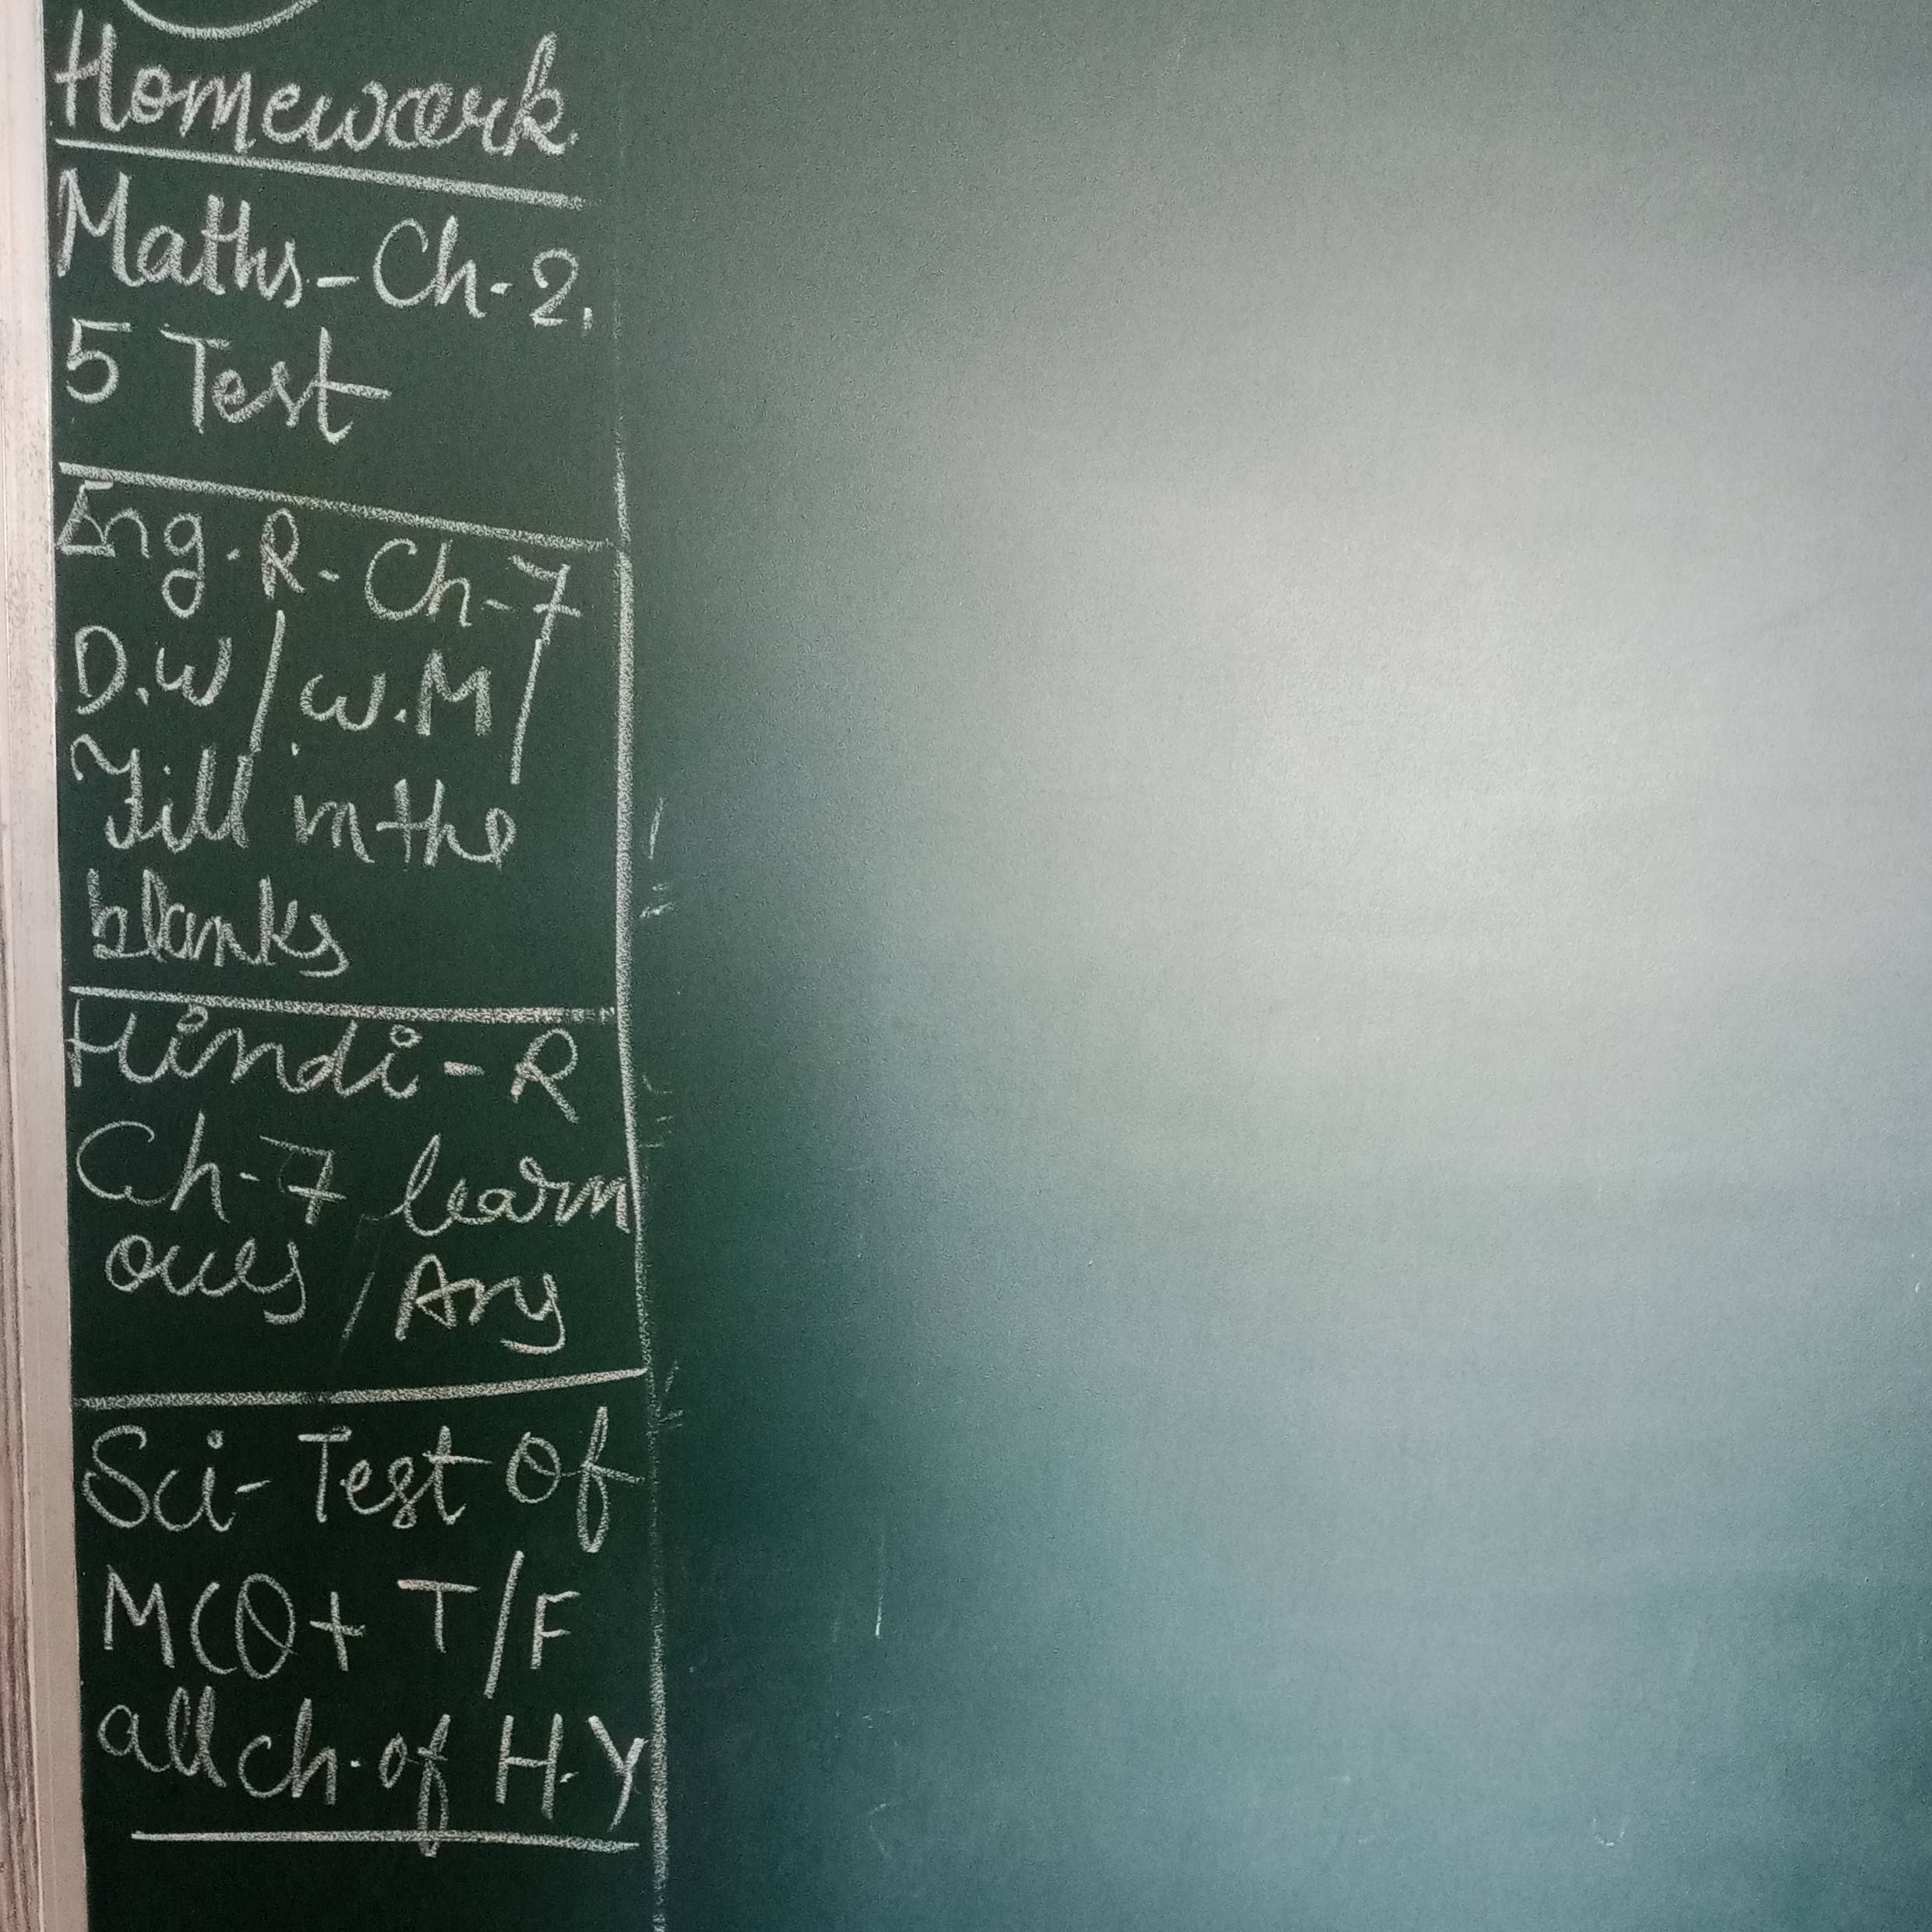 Homework
Maths - Ch - 2,
5 Test
Eng. R - Ch - 7
D.W / W.M /
Fill in the
blanks
Hindi - R
Ch - 7 learn
Ques / Ans
Sci - Test Of
MCQ + T/F
all ch. of H.Y